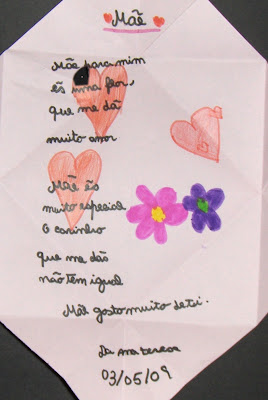 Mãe
Mãe para mim
és uma flor,
que me dá
muito amor
Mãe és
muito especial
O carinho
que me dás
não tem igual
Mãe gosto muito de ti.
Da Ana Teresa
03/05/09